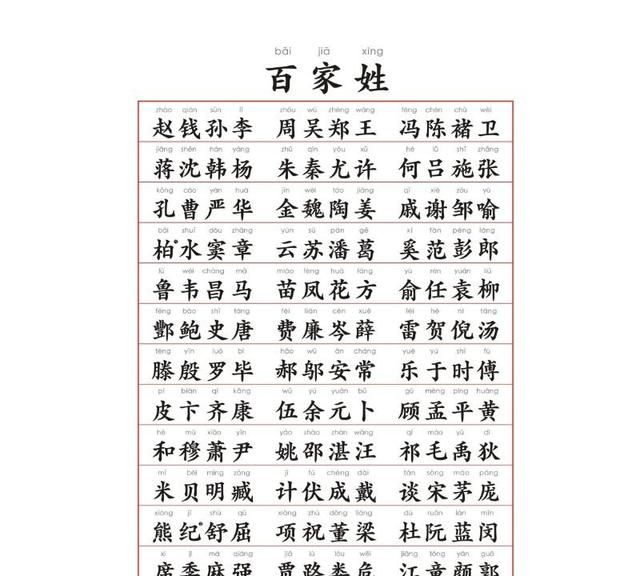 bǎi jiā xìng
百家姓
zhào qián sūn lǐ zhōu wú zhèng wáng féng chén chǔ wèi
赵钱孙李 周吴郑王 冯陈褚卫
jiǎng shěn hán yáng zhū qín yóu xǔ hé lǚ shī zhāng
蒋沈韩杨 朱秦尤许 何吕施张
kǒng cáo yán huà jīn wèi táo jiāng qī xiè zōu yù
孔曹严华 金魏陶姜 戚谢邹喻
bǎi shuǐ dòu zhāng yún sū pān gě xī fàn péng láng
柏*水窦章 云苏潘葛 奚范彭郎
lǔ wéi chāng mǎ miáo fèng huā fāng yú rén yuán liǔ
鲁韦昌马 苗凤花方 俞任袁柳
fēng bào shǐ táng fèi lián cén xuē léi hè ní tāng
酆鲍史唐 费廉岑薛 雷贺倪汤
téng yīn luó bì hǎo wū ān cháng yuè yú shí fù
滕殷罗毕 郝邬安常 乐于时傅
pí biàn qí kāng wǔ yú yuán bǔ gù mèng píng huáng
皮卞齐康 伍余元卜 顾孟平黄
hé mù xiāo yǐn yáo shào zhàn wāng qí máo yǔ dí
和穆萧尹 姚邵湛汪 祁毛禹狄
mǐ bèi míng zāng jì fú chéng dài tán sòng máo páng
米贝明臧 计伏成戴 谈宋茅庞
xióng jǐ shū qū xiàng zhù dǒng liáng dù ruǎn lán mǐn
熊纪*舒屈 项祝董梁 杜阮蓝闵
xí jì má qiáng jiǎ lù lóu wēi jiāng tóng yán guō
席季麻强 贾路娄危 江童颜郭